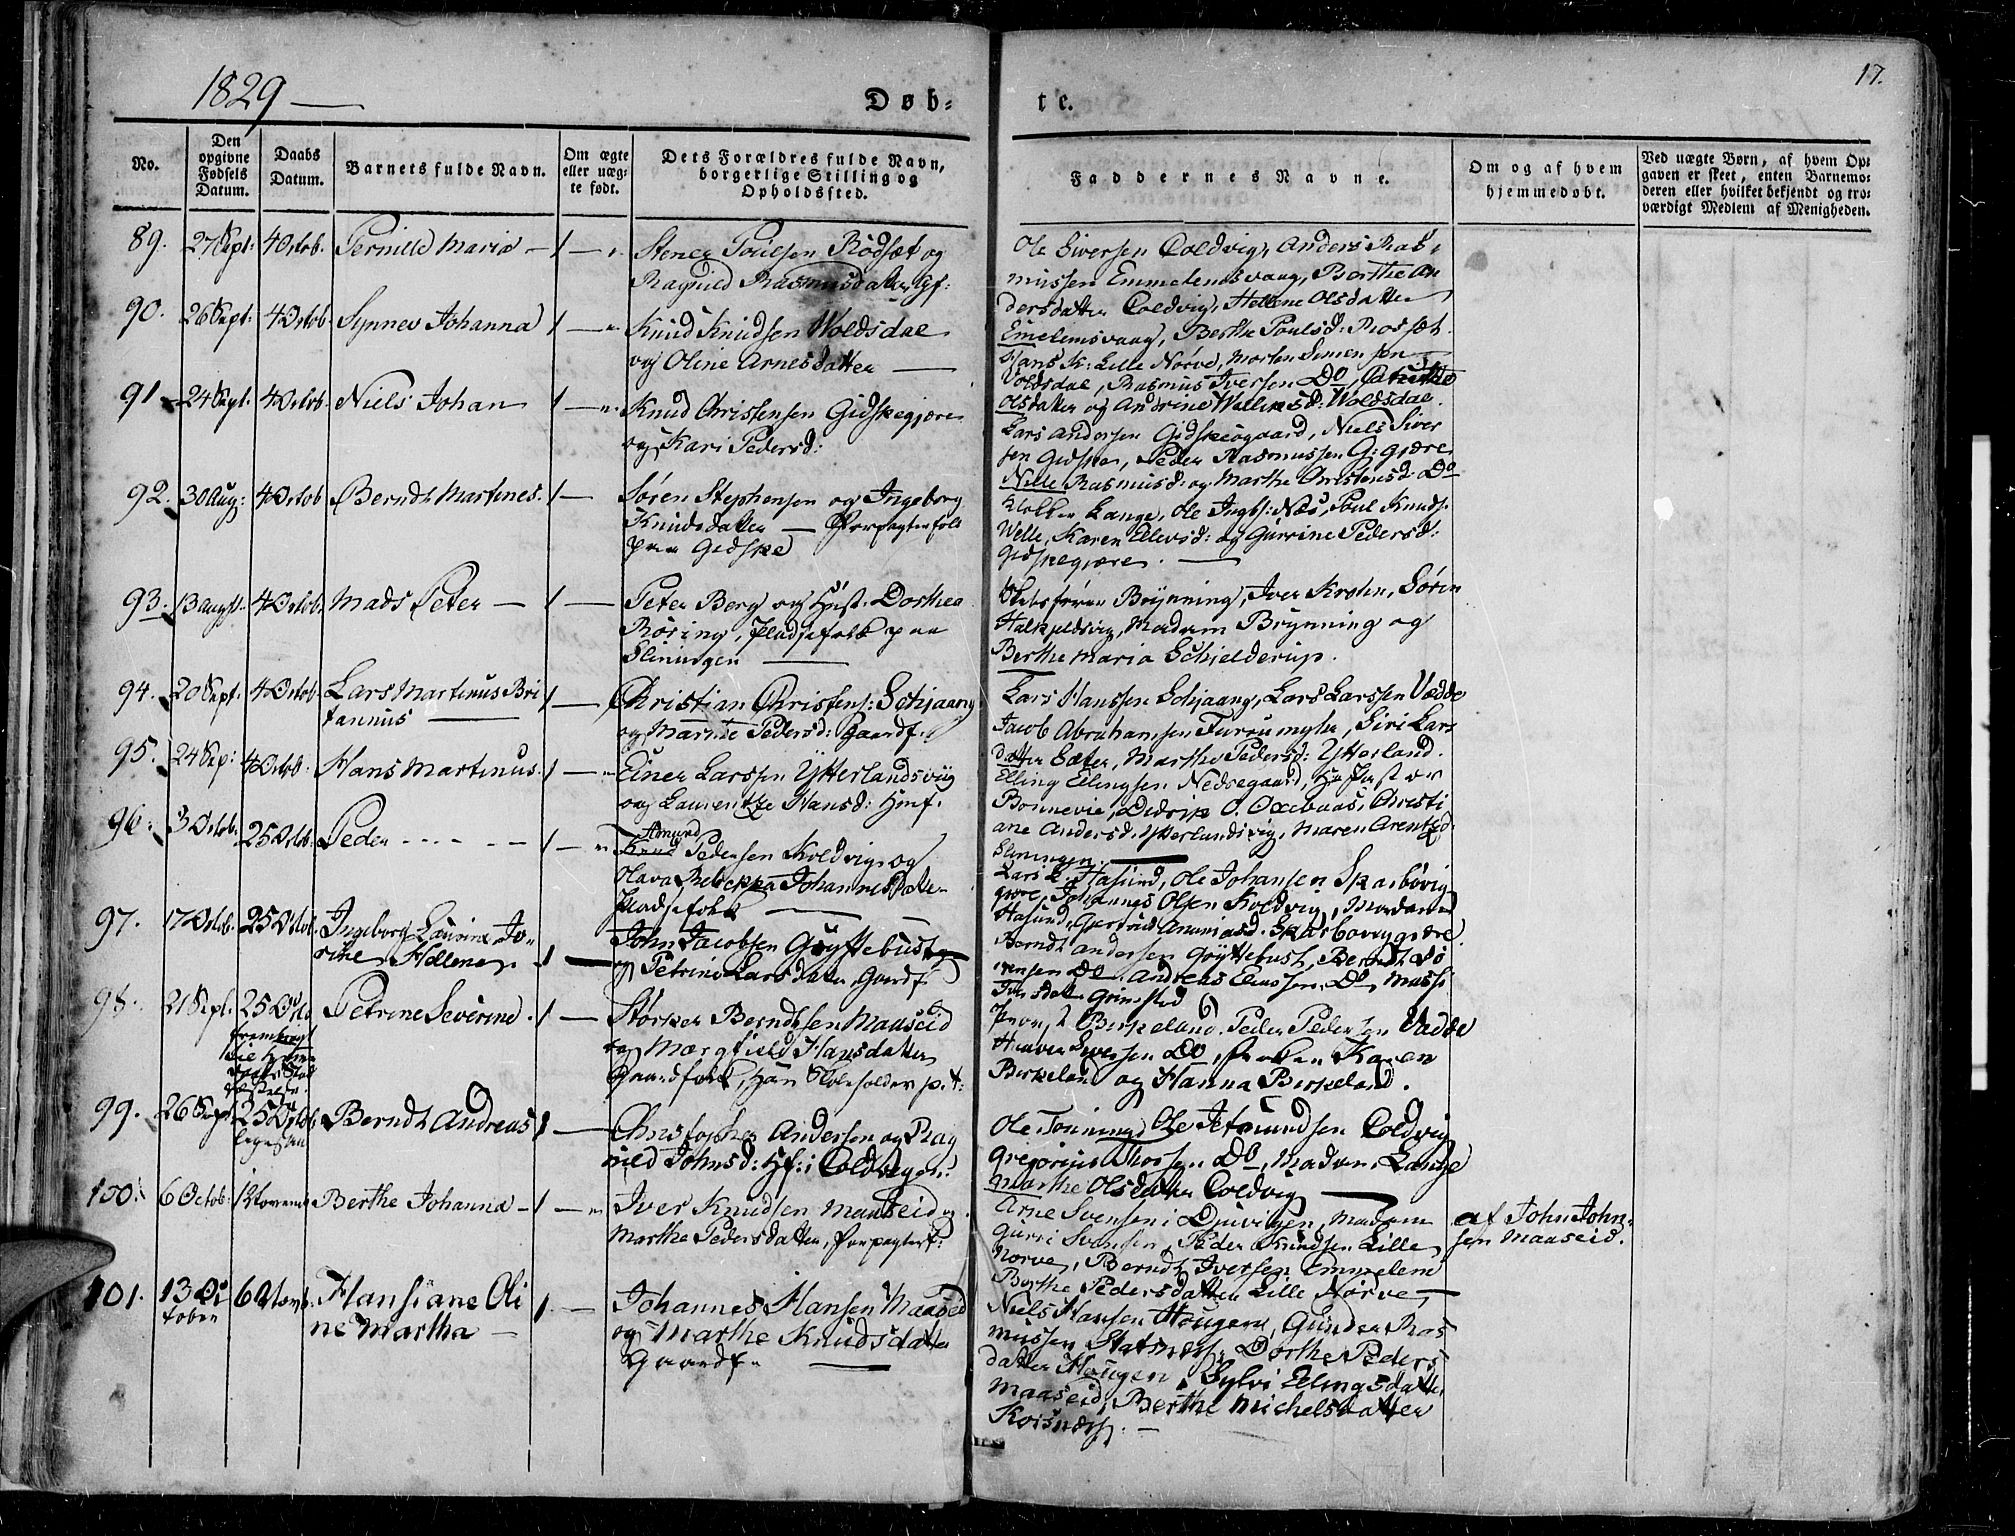 1829 —
Døb-
te.
17.
No.
Den opgivne Fødsels Datum.
Daabs Datum.
Barnets fulde Navn.
Om ægte eller uæg-te født.
Dets Forældres fulde Navn, borgerlige Stilling og Opholdssted.
Faddernes Navne.
Om og af hvem hjemmedøbt.
Ved uægte Børn, af hvem Op-gaven er skeet, enten Barnemo-deren eller hvilket bekjendt og tro-værdigt Medlem af Menigheden.
89. 27 Sept: 4 Octob. Pernille Maria — 1 —
Stener Poulsen Rødsæt og
Ragnild Rasmusdatter Hf:
Ole Siversen Coldvig, Anders Ras-
mussen Emmelemsvaag, Berthe An
dersdatter Coldvig, Hellene Olsdatter
Emelemsvaag, Berthe Poulsd: Rossæt
90. 26 Sept: 4 Octob. Synnev Johanna 1 —
Knud Knudsen Woldsdal
og Oline Arnesdatter —
Hans K: Lille Nørve, Morten Simensen
Voldsdal, Rasmus Iversen Do,
Olsdatter og Andrine Willumsd: Woldsdal.
91. 24 Sept. 4 Octob. Niels Johan 1 —
Knud Christensen Gidskegjøre
og Kari Pedersd:
Lars Andersen Gidskeøgaard, Niels Siver
sen Gidske, Peder Rasmussen G: gjøre
Nille Rasmusd: og Marthe Christensd: Do
92. 30 Aug: 4 Octob Berndt Martines. 1 —
Søren Stephensen og Ingeborg
Knudsdatter — Forpagterfolk
paa Gidske
Klokker Lange, Ole Ingbs: Næs, Poul Knuds.
Welle, Karen Ellevsd: og Gurrine Pedersd:
Gidskegjøre. —
93. 13 Augst. 4 Octob. Mads Peter — 1 —
Peter Berg og Hust: Dorthea
Røring, Pladsefolk paa
Slinningen —
Skibsfører Brynning, Iver Krohn, Søren
Hatlpeldsvig, Madam Brynning og
Berthe Maria Schjelderup.
94. 20 Sept. 4 Octob. Lars Martinus Bri
tannus — 1 —
Christian Christens: Schjaang
og Marthe Pedersd: Gaardf.
Lars Hanssen Schjaang, Lars Larssen Vedde
Jacob Abrahamsen Furrumyhr, Siri Lars
datter Sæter, Marthe Pedersd: Ytterland.
95. 24 Sep: 4 Octob. Hans Martinus. 1 —
Einer Larssen Ytterlandsvig
og Laurentze Hansd: Hmf.
Elling Ellingsen Nedregaard, Hr Pastor
Bonnevie, Didrik O. Oxebaas, Christi
ane Andersd. Ytterlandsvig, Maren Arentzd.
Slinningen.
96. 3 Octob. 25 Octb. Peder - - - - - 1 —
Amund
Knud Pedersen Koldvig og
Olava Rebekka Johannesdatte-
Pladsefolk —
Lars L. Hasund, Ole Johansen Skarbøvig
gjøre, Johannes Olsen Koldvig, Madame
Hasund, Gertrud Ananiasd. Skarbøviggjøre.
97. 17 Octob. 25 Octob. Ingeborg Laurine Jo-
rike Hellene. 1 —
John Jacobsen Gryttebust
og Petrine Larsdatter Gaardf.
Berndt Andersen Gryttebust, Berndt Sø
rensen Do Andreas Eliassen Do, Massi
Iversdatt Grimstad
98. 21 Sept. 25 Octb Petrine Severine. 1 —
Størker Berndtsen Maaseid
og Margfield Hansdatter
Gaardfolk, Han Skoleholder p.t:
Provst Birkeland. Peder Pedersen Vedde
Siversen Do, Frøken Karen
Birkeland og Hanna Birkeland.
99. 26 Sept 25 Octob Berndt Andreas 1 —
ligesaa
Christopher Andersen og Rag
nild Johnsd: Hf: i Coldvigen.
Ole Tønning, Ole Ietmundsen Coldvig
Gregorius Thorsen Do, Madam Lange
Marthe Olsdatter Coldvig
100. 6 Octob. 1 Novemb Berthe Johanna — 1 —
Iver Knudsen Maaseid og
Marthe Pedersdatter, Forpagterf:
Arne Svensen i Djuvigen, Madam
Gurri Svensen, Peder Knudsen Lille
Nørve, Berndt Iversen Emmelem
Berthe Pedersdatter Lille Nørve, —
af John John-
sen Maaseid.
101. 13 Oc
tober 6 Novemb. Hansiane Oli
ne Martha — 1. —
Johannes Hansen Maaseid
og Marthe Knudsdatter
Gaardf. —
Niels Hansen Hougen, Gunder Ras
mussen Slatnæss, Dorthe Peders
datter Hougen, Sylvi Ellingsdatter
Maaseid, Berthe Michelsdatter
Korsnæss. —